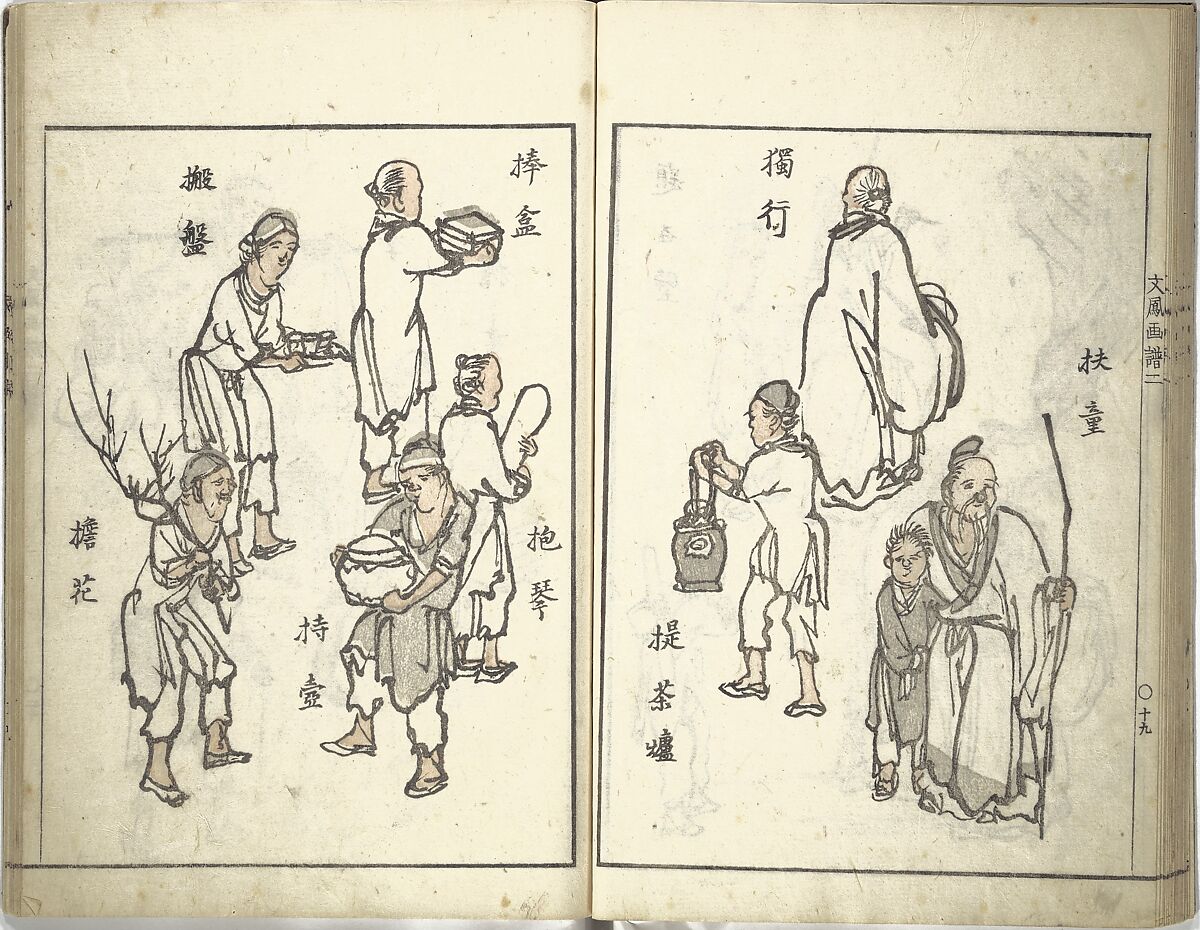 文鳳画譜二
〇十九
扶童
獨行
提茶爐
捧盒
抱琴
搬盤
持壺
擔花